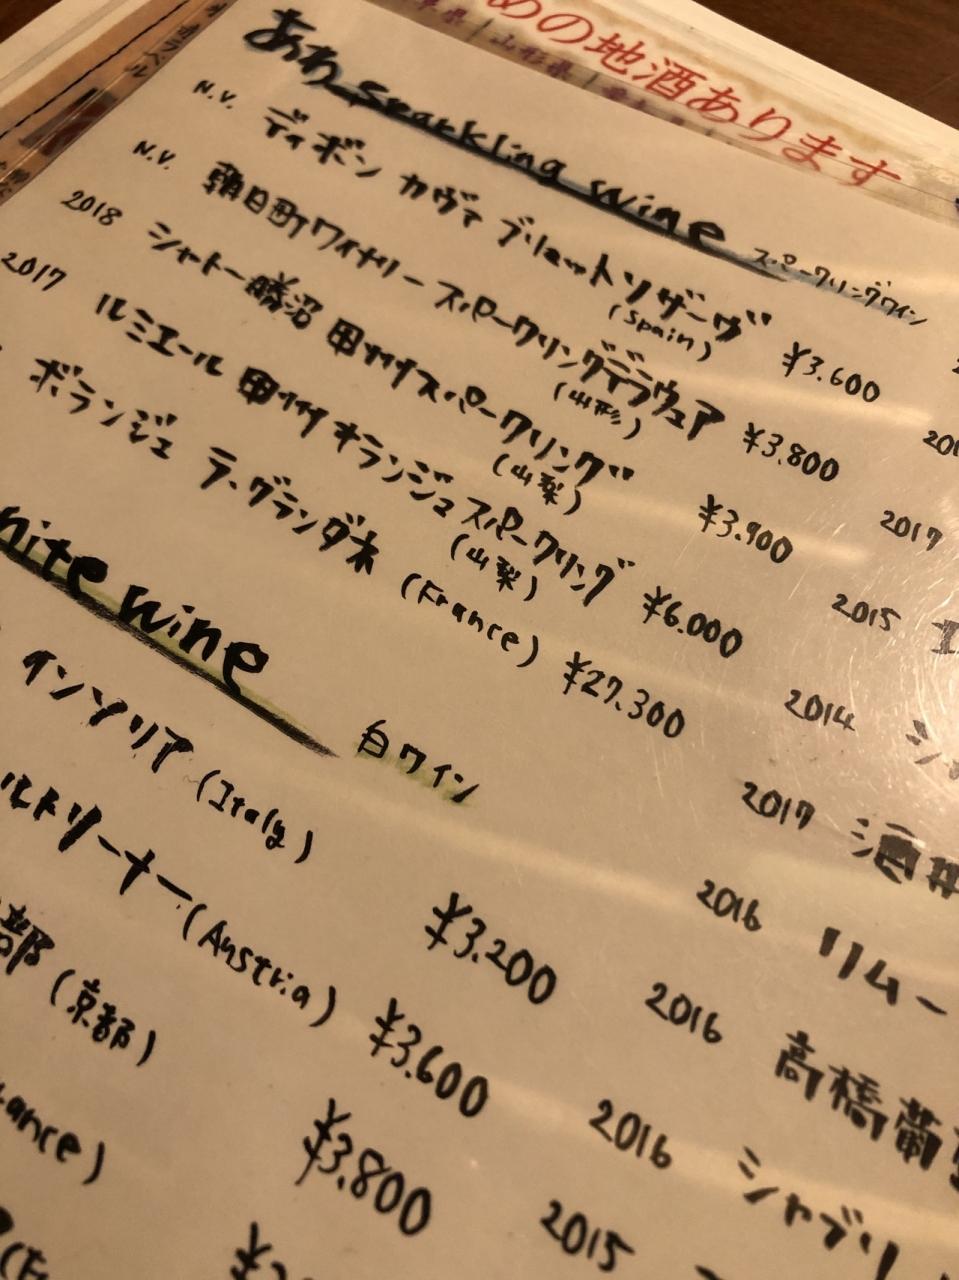 めの地酒あります
山形県
あわ Sparkling wine スパークリングワイン
N.V. ディボン カヴァ ブリュットリザーヴ (Spain) ¥3.600
N.V. 朝日町ワイナリー スパークリングデラウェア (山形) ¥3.800
2018 シャトー勝沼 甲州スパークリング (山梨) ¥3.900
2017 ルミエール 甲州オランジュスパークリング (山梨) ¥6.000
ボランジェ ラ.グランダネ (France) ¥27.300
hite wine 白ワイン
インソリア (Italy) ¥3.200
ルトリーナー (Austria) ¥3.600
部 (京都) ¥3.800
ance)
2017
2015
2014
2017 酒井
2016 リムー
2016 高橋葡
2016 シャブリ
2015